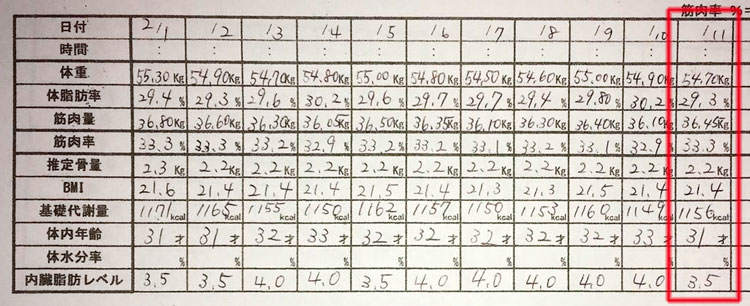 筋肉率 %=
日付 2/1 /2 /3 /4 /5 /6 /7 /8 /9 /10 /11
時間 : : : : : : : : : : :
体重 55.30Kg 54.90Kg 54.70Kg 54.80Kg 55.00Kg 54.80Kg 54.50Kg 54.60Kg 55.00Kg 54.90Kg 54.70Kg
体脂肪率 29.4% 29.3% 29.6% 30.2% 29.6% 29.7% 29.7% 29.4% 29.80% 30.2% 29.3%
筋肉量 36.80Kg 36.60Kg 36.30Kg 36.05Kg 36.50Kg 36.35Kg 36.10Kg 36.30Kg 36.40Kg 36.10Kg 36.45Kg
筋肉率 33.3% 33.3% 33.2% 32.9% 33.2% 33.2% 33.1% 33.2% 33.1% 32.9% 33.3%
推定骨量 2.3Kg 2.2Kg 2.2Kg 2.2Kg 2.2Kg 2.2Kg 2.2Kg 2.2Kg 2.2Kg 2.2Kg 2.2Kg
BMI 21.6 21.4 21.4 21.4 21.5 21.4 21.3 21.3 21.5 21.4 21.4
基礎代謝量 1171kcal 1165kcal 1155kcal 1150kcal 1162kcal 1157kcal 1150kcal 1153kcal 1160kcal 1149kcal 1156kcal
体内年齢 31才 31才 32才 33才 32才 32才 32才 32才 32才 33才 31才
体水分率 % % % % % % % % % % %
内臓脂肪レベル 3.5 3.5 4.0 4.0 3.5 4.0 4.0 4.0 4.0 4.0 3.5